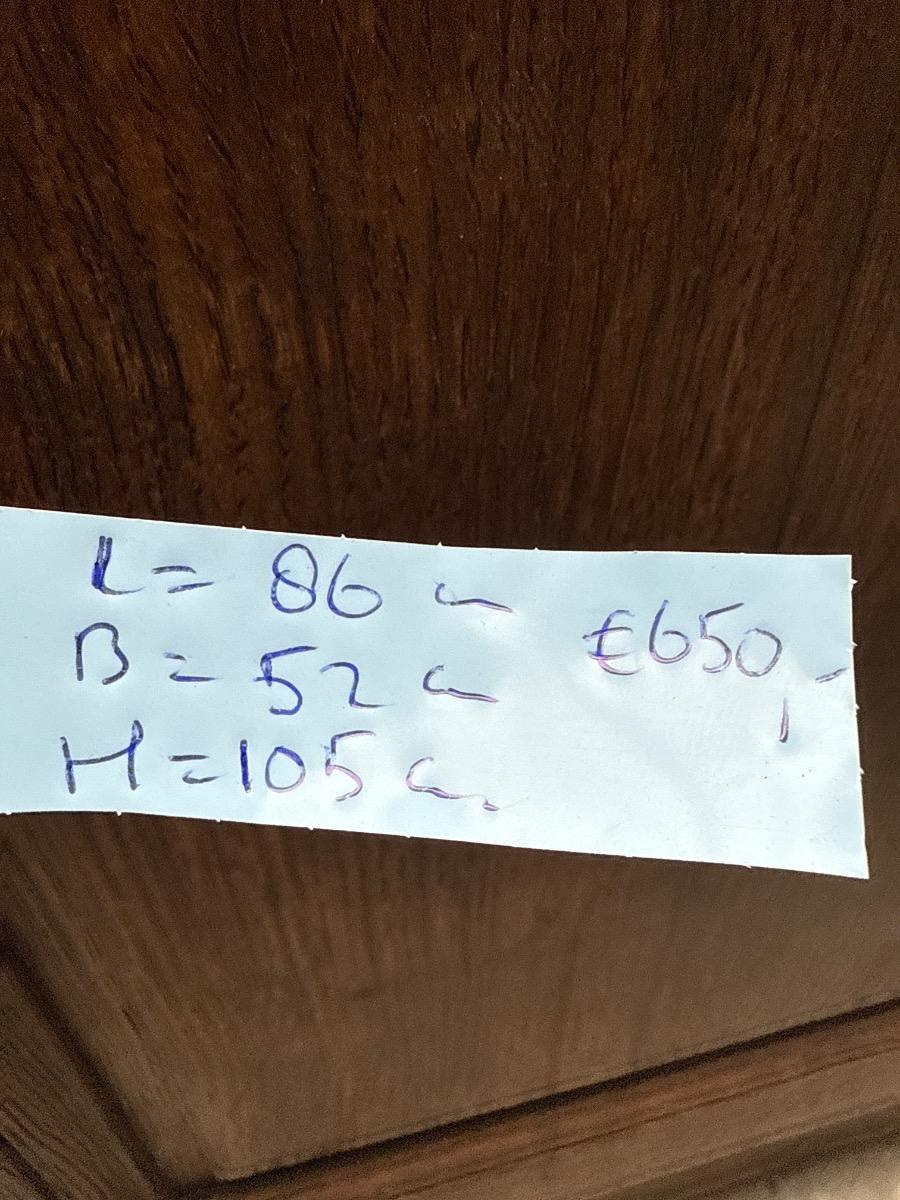 L = 86 cm
B = 52 cm
H = 105 cm
€650,-